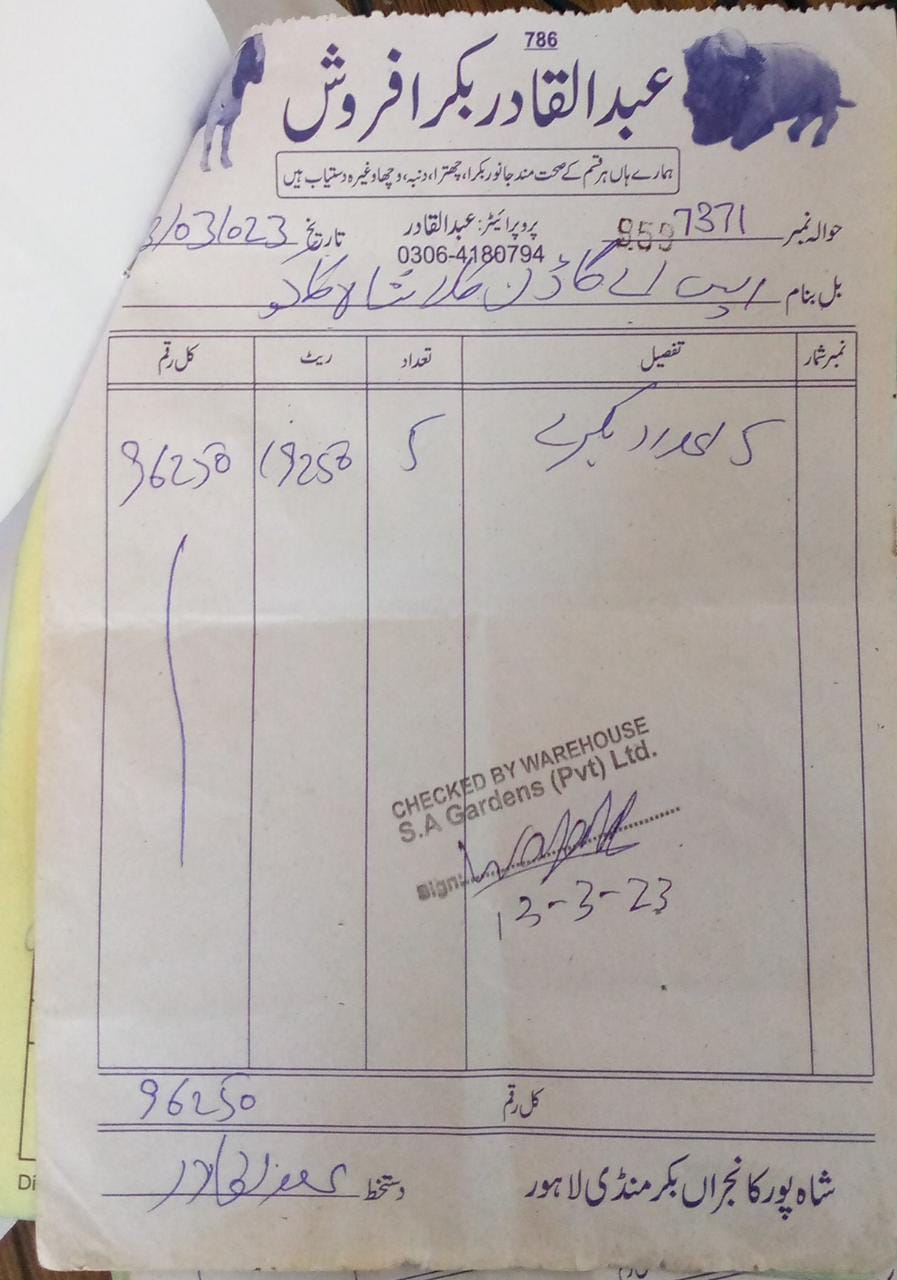 786
عبدالقادر بکرا فروش
ہمارے ہاں ہر قسم کے صحت مند جانور بکرا، چھترا، دنبہ، وچھا وغیرہ دستیاب ہیں
حوالہ نمبر 7371 959 پروپرائیٹر: عبدالقادر تاریخ 3/03/023
0306-4180794
بل بنام ایس اے گارڈن کالا شاہ کاکو
نمبر شمار تفصیل تعداد ریٹ کل رقم
5 عدد بکرے 5 19250 96250
CHECKED BY WAREHOUSE
S.A Gardens (Pvt) Ltd.
Sign:
13-3-23
کل رقم 96250
شاہ پور کانجراں بکر منڈی لاہور دستخط عبدالقادر
Di